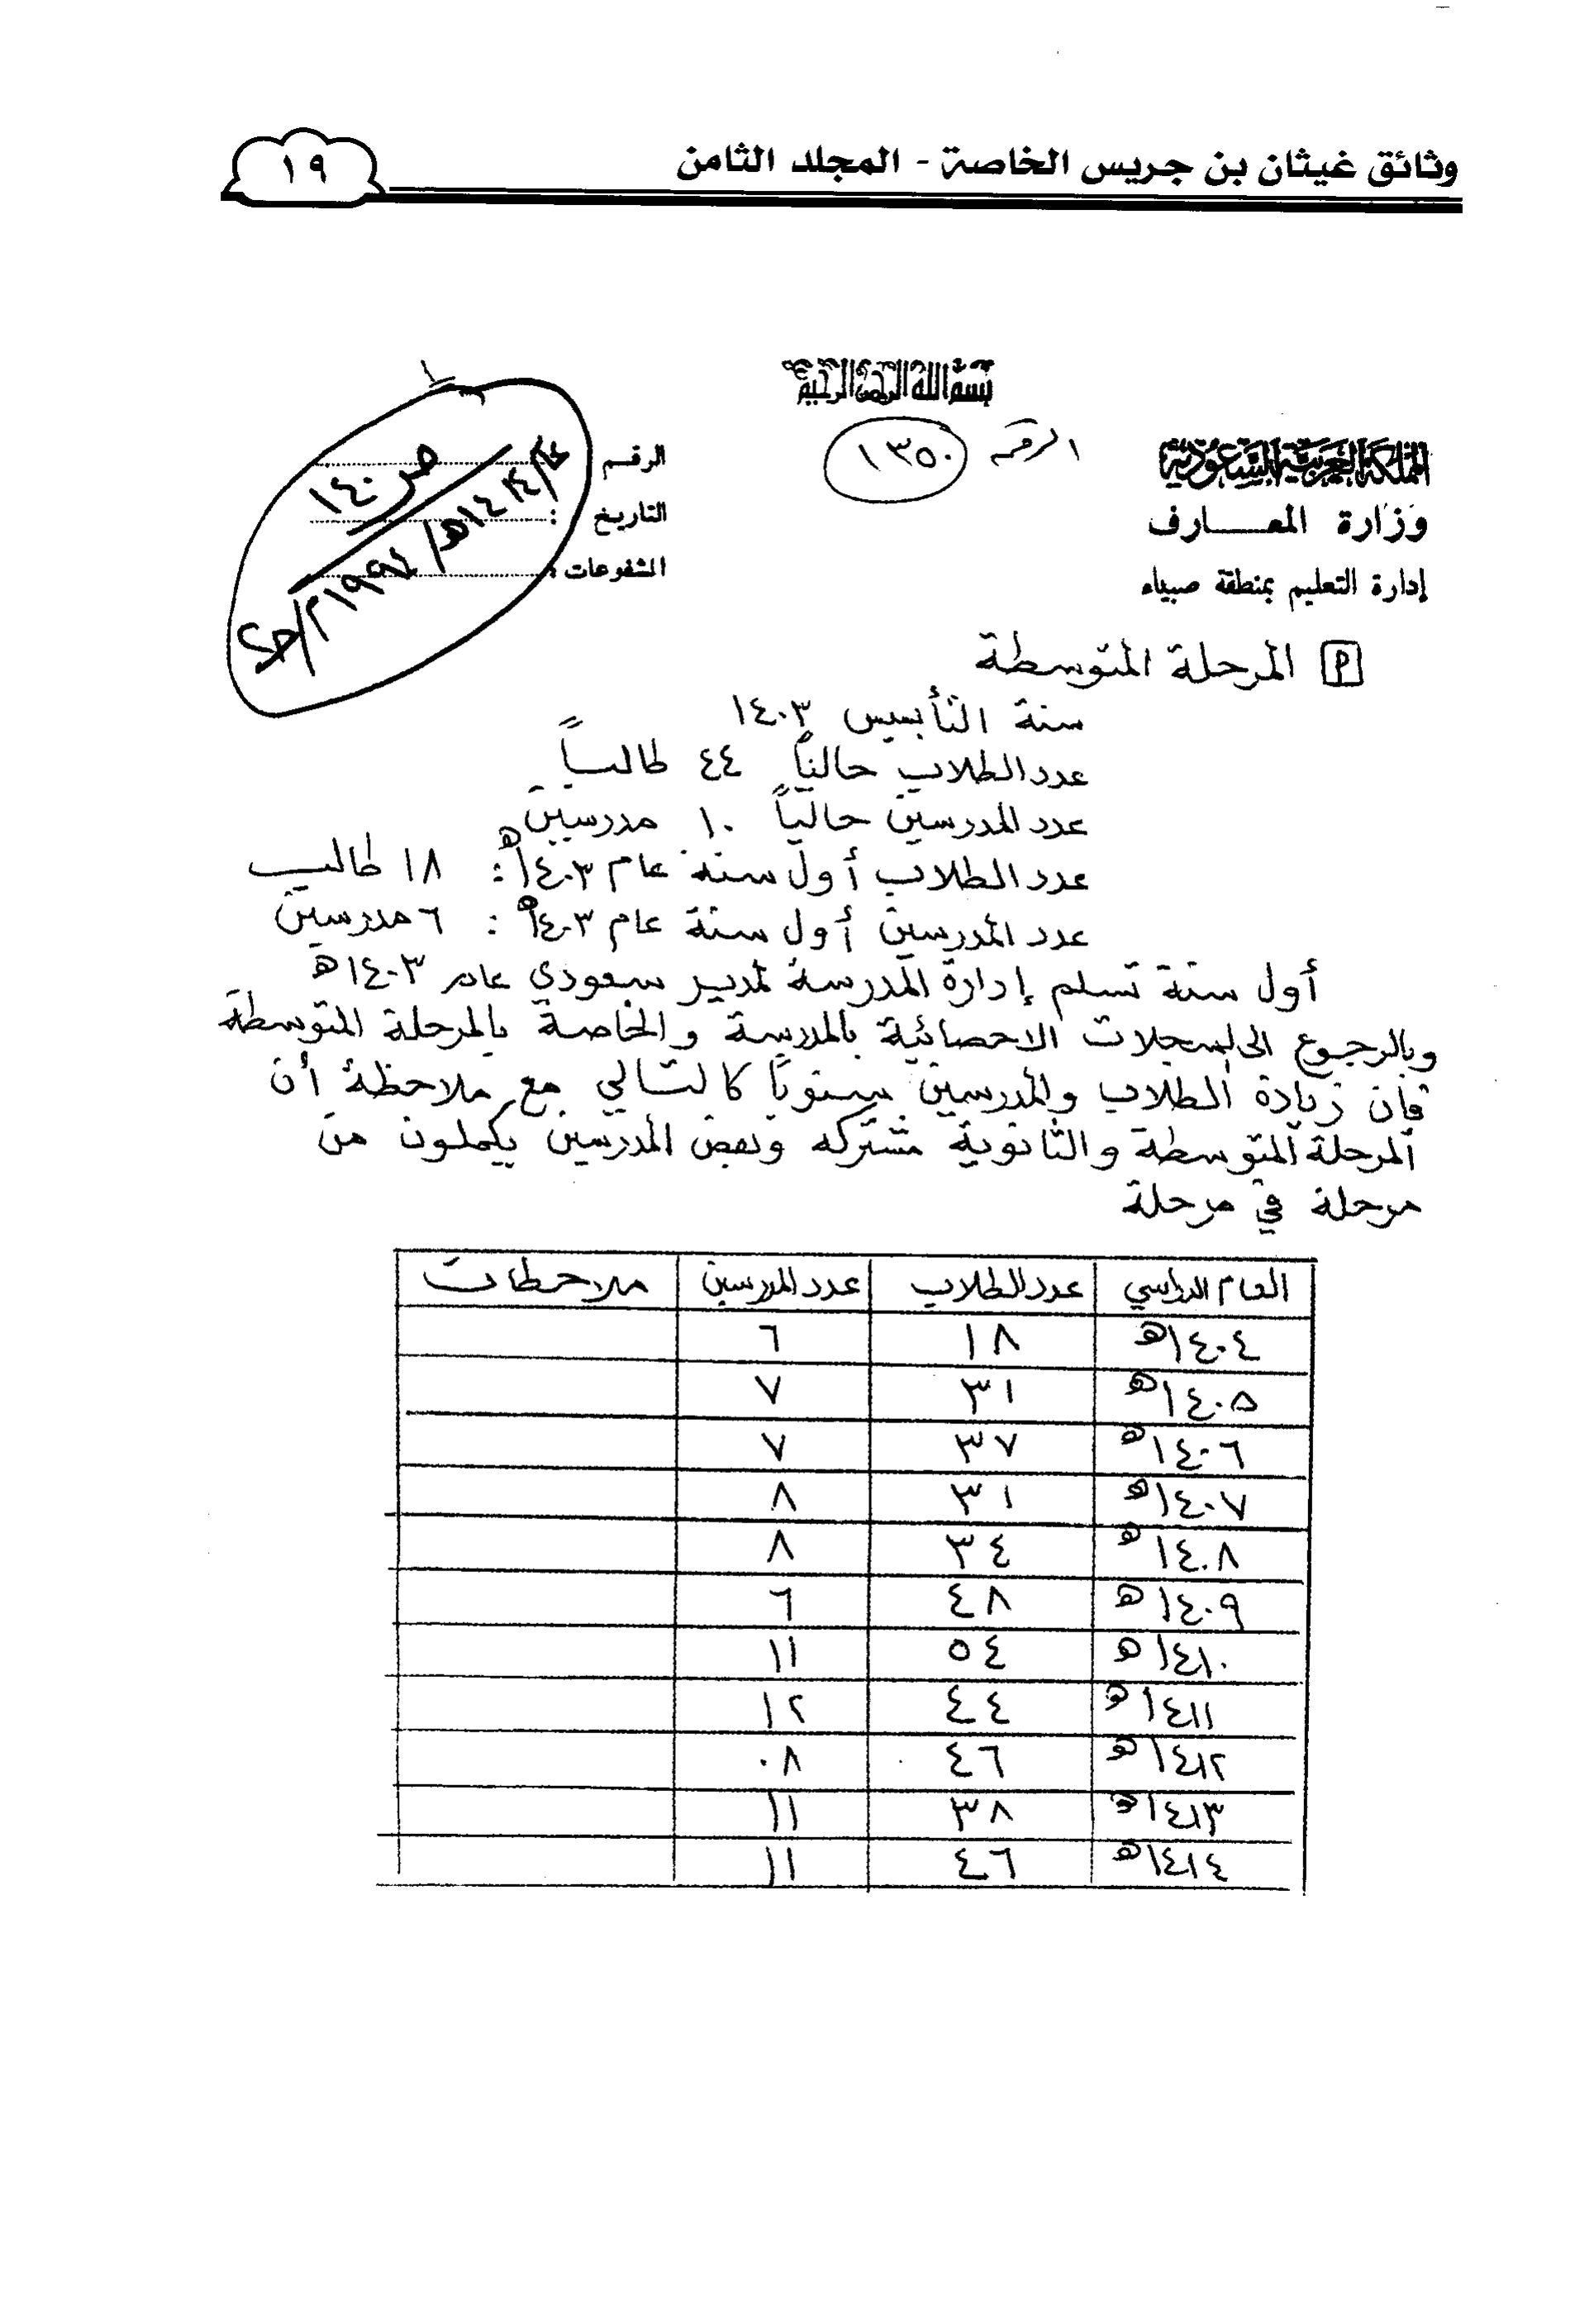 وثائق غيثان بن جريس الخاصة - المجلد الثامن
١٩
بسم الله الرحمن الرحيم
المملكة العربية السعودية
وزارة المعـــارف
إدارة التعليم بمنطقة صبياء
الرقم ١٣٥٠
الرقـم
التاريخ :
المشفوعات :
ص ١٤٠
م١٩٩٧ / ١٤هـ
أ المرحلة المتوسطة
سنة التأسيس ١٤٠٣
عدد الطلاب حالياً ٤٤ طالباً
عدد المدرسين حالياً ١٠ مدرسين
عدد الطلاب أول سنة عام ١٤٠٣هـ : ١٨ طالب
عدد المدرسين أول سنة عام ١٤٠٣هـ : ٦ مدرسين
أول سنة تسلم إدارة المدرسة لمدير سعودي عام ١٤٠٣هـ
وبالرجوع الى السجلات الاحصائية بالمدرسة والخاصة بالمرحلة المتوسطة
فإن زيادة الطلاب والمدرسين سنوياً كالتالي مع ملاحظة أن
المرحلة المتوسطة والثانوية مشتركه وبعض المدرسين يكملون من
مرحلة في مرحلة
العام الدراسي عدد الطلاب عدد المدرسين ملاحظات
١٤٠٤هـ ١٨ ٦
١٤٠٥هـ ٣١ ٧
١٤٠٦هـ ٣٧ ٧
١٤٠٧هـ ٣١ ٨
١٤٠٨هـ ٣٤ ٨
١٤٠٩هـ ٤٨ ٦
١٤١٠هـ ٥٤ ١١
١٤١١هـ ٤٤ ١٢
١٤١٢هـ ٤٦ ٠٨
١٤١٣هـ ٣٨ ١١
١٤١٤هـ ٤٦ ١١